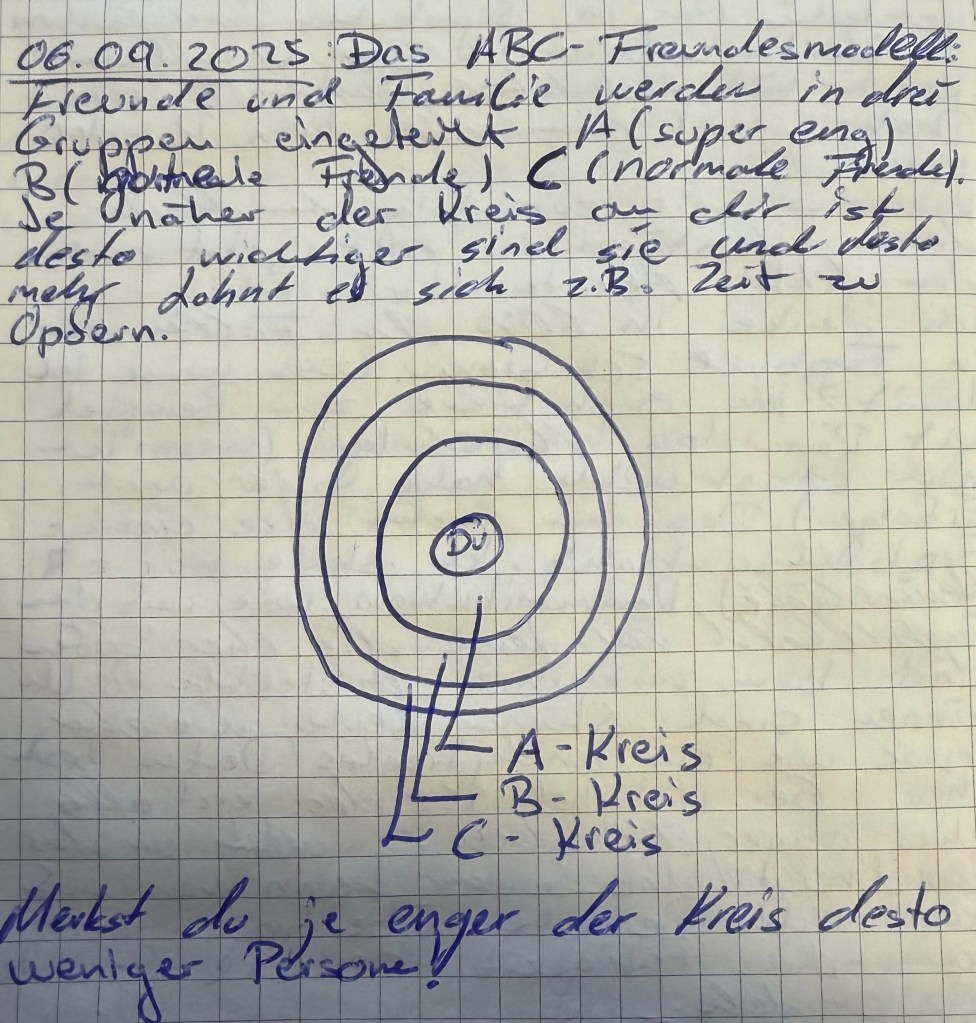 06.09.2025: Das ABC-Freundesmodell:
Freunde und Familie werden in drei
Gruppen eingeteilt A (super eng)
B ( Freunde) C (normale Freunde).
Je näher der Kreis an dir ist
desto wichtiger sind sie und desto
mehr Lohnt es sich z.B. Zeit zu
Opfern.
Du
A - Kreis
B - Kreis
C - Kreis
Merkst du je enger der Kreis desto
weniger Persone!